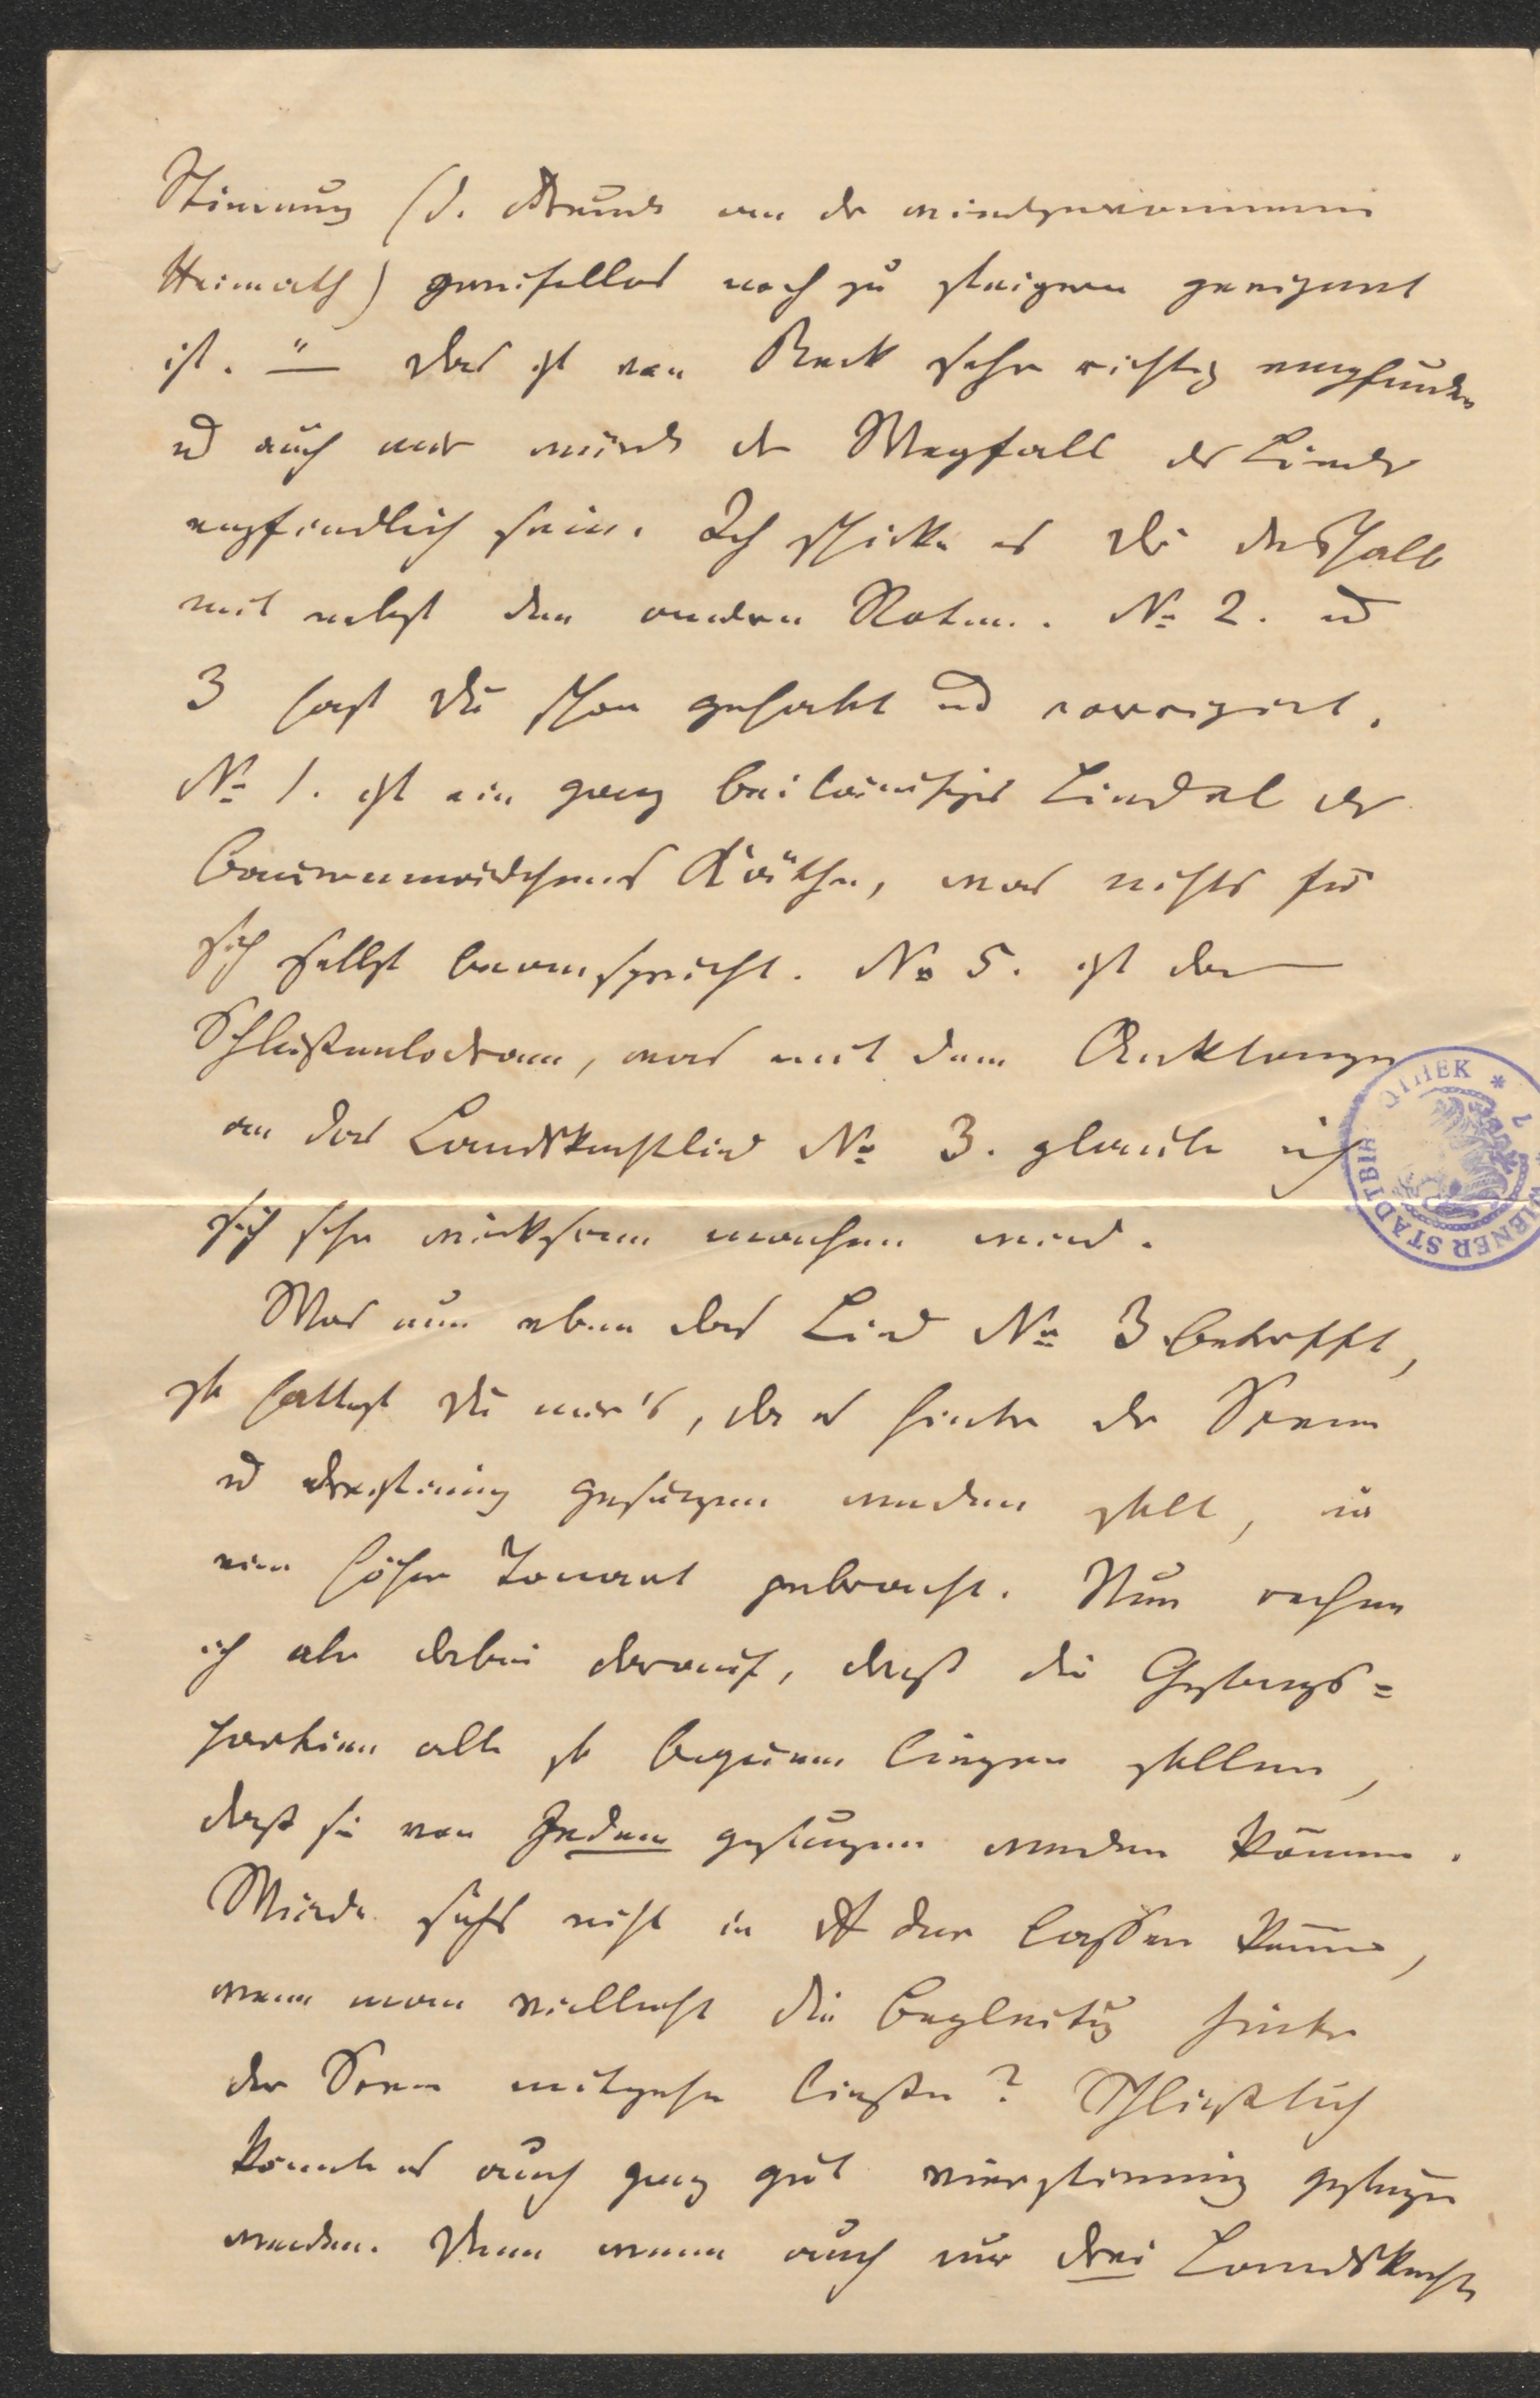 Stimmung (d. Freude an der wiedergewonnenen
Heimath) zweifellos noch zu steigern geeignet
ist. "— Das ist von Beck sehr richtig empfunden
ud auch mir würde der Wegfall des Liedes
empfindlich sein. Ich schicke es Dir deßhalb
mit nebst den anderen Noten. No 2. ud
3 hast Du schon gehabt ud corrigirt.
No 1. ist ein ganz beiläufiges Liedel des
Bauernmädchens Käthe, was nichts für
sich selbst beansprucht. No 5. ist der
Schlußmelodram, was mit dem Anklange
an das Landsknechtlied No 3. glaube ich
sich sehr wirksam machen wird.
Was nun eben das Lied No 3 betrifft,
so hattest Du mir's, da es hinter der Scene
ud dreistimmig gesungen werden soll, in
eine höhere Tonart gebracht. Nun rechne
ich aber dabei darauf, daß die Gesangs=
partien alle so bequem liegen sollen,
daß sie von Jedem gesungen werden können.
Würde sichs nicht in A dur lassen können,
wenn man vielleicht die Begleitung hinter
der Scene mitgehen ließe? Schließlich
könnte es auch ganz gut vierstimmig gesungen
werden. Denn wenn auch nur drei Landsknechte
WIENER STADTBIBLIOTHEK *